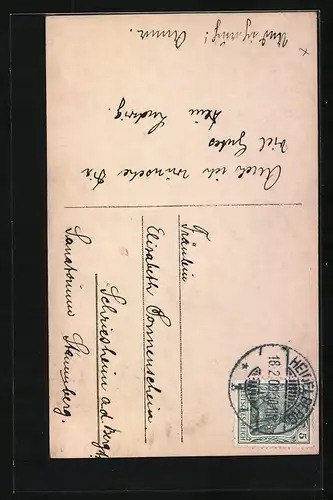 Und ich auch! Anna.
Auch ich wünsche Dir
viel Gutes
Dein Ludwig.
Fräulein
Elisabeth Sonnenschein
Schriesheim a.d. Bergstr.
Sanatorium Stammberg.
HEIDELBERG
18.2.0
5